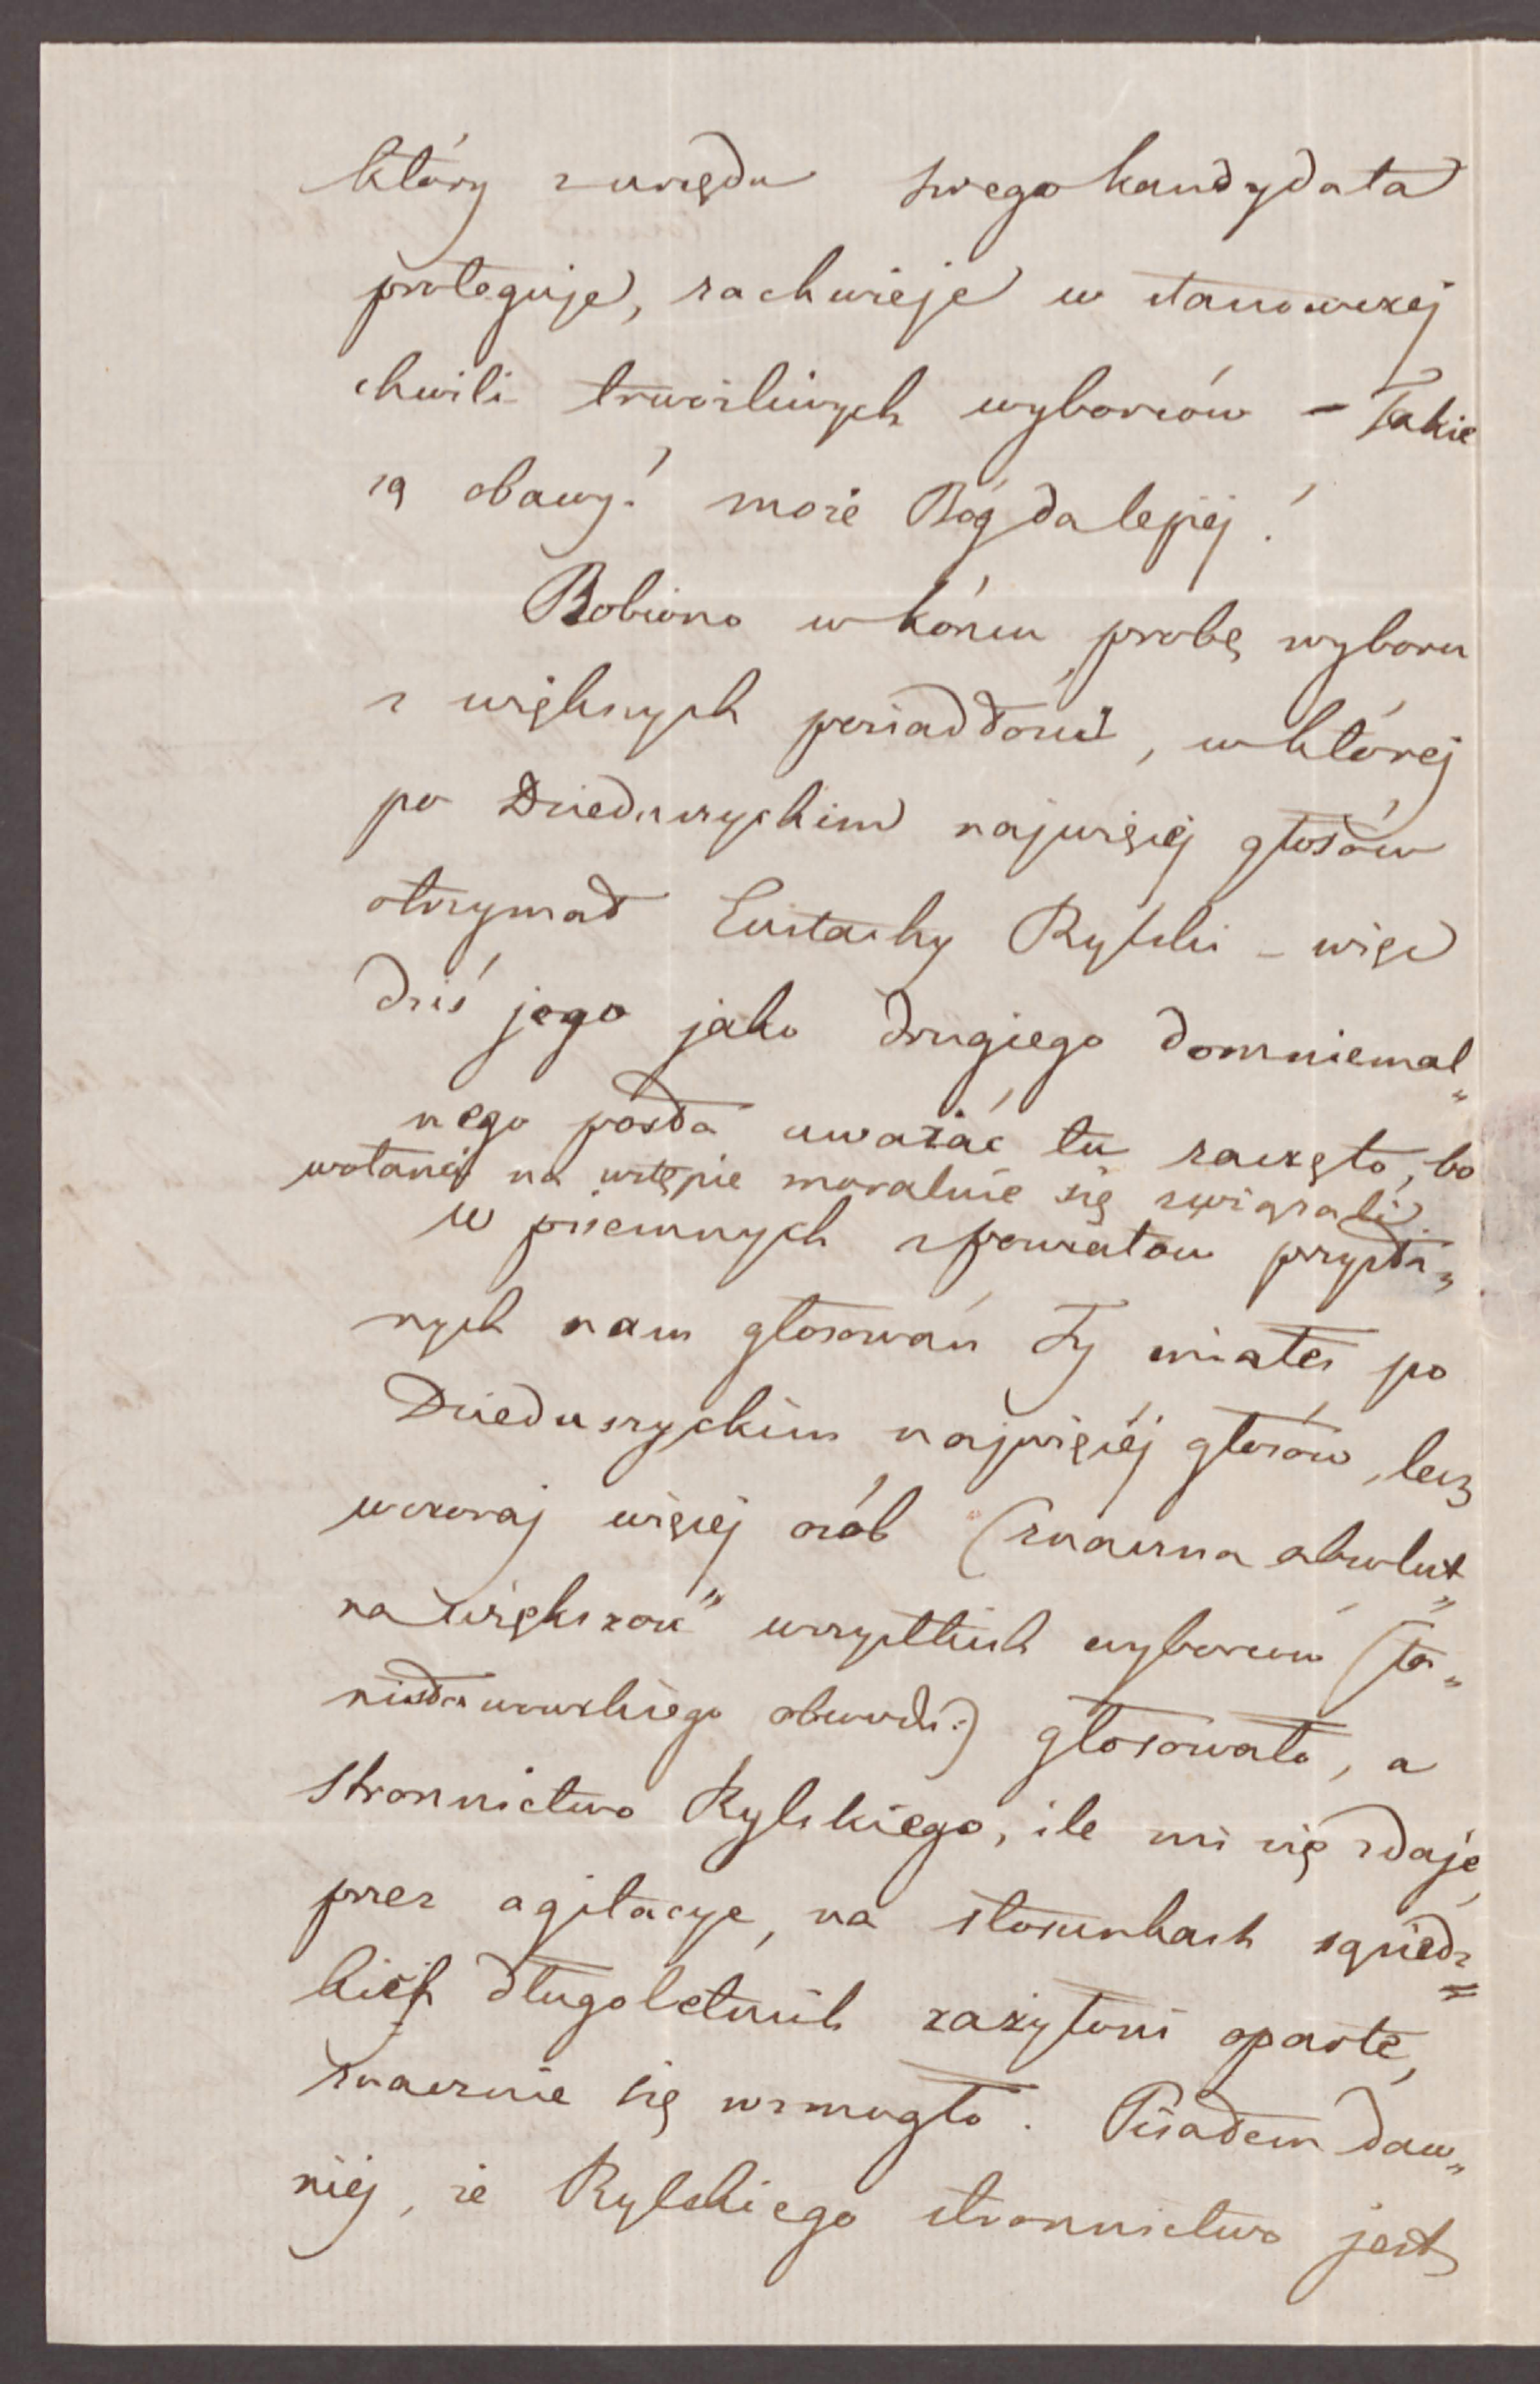 który z urzędu swego kandydata
proteguje, zachwieje w stanowczej
chwili trwożliwych wyborców – Takie
są obawy! może Bóg da lepiej!
Robiono w końcu próbę wyboru
z większych posiadłości, w której
po Dzieduszyckim najwięcej głosów
otrzymał Eustachy Rylski – więc
dziś jego jako drugiego domniemal„
nego posła uważać tu zaczęto, bo
wotanci na wstępie moralnie się związali.
W pisemnych z powiatów przysła„
nych nam głosowań Ty miałeś po
Dzieduszyckim najwięcej głosów, lecz
wczoraj więcej osób (znaczna absolut„
na większość" wszystkich wyborców (Sta„
nisławowskiego obwodu:) głosowało, a
stronnictwo Rylskiego, ile mi się zdaje,
przez agitacye, na stosunkach sąsiedz=
kich długoletnich zażyłości oparte,
znacznie się wzmogło. Pisałem daw„
niej, że Rylskiego stronnictwo jest